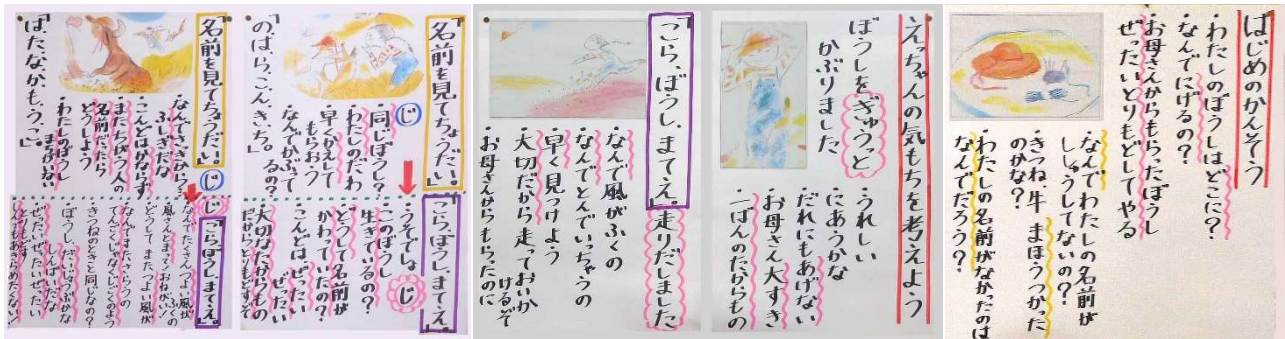 はじめのかんそう
・わたしのぼうしはどこに？
・なんでにげるの？
・お母さんからもらったぼうし
ぜったいとりもどしてやる
・なんでわたしの名前が
ししゅうしてないの？
・きつね、牛 まほうつかった
のかな？
・わたしの名前がなかったのは
なんでだろう？
えっちゃんの気もちを考えよう
ぼうしをぎゅうっと
かぶりました
・うれしい
・にあうかな
・だれにもあげない
・お母さん大すき
・一ばんのたからもの
「こら、ぼうし、まてえ。」走りだしました
・なんで風がふくの
・なんでとんでいっちゃうの
・早く見つけよう
・大切だから走っておいか
けるぞ
・お母さんからもらったのに
「名前を見てちょうだい。」
じ
・同じぼうし？
・わたしのだわ
・早くかえして
もらおう
・なんでかぶって
るの？
「の、は、ら、こ、ん、き、ち。」
「こら、ぼうし、まてえ。」
じ
・うそでしょ
・このぼうし
生きているの？
・どうして名前が
かわっていたの？
・こんどはぜったい
ぜったい
・大切なたからもの
だからとりもどすぞ
「名前を見てちょうだい。」
じ
・なんでさっきから？
・ふしぎだな
・こんどはかならず
・またちがう人の
名前だったら
どうしよう
・わたしのぼうし
「は、た、な、か、も、う、こ。」
じ
「こらぼうし、まてえ。」
・なんでたくさんつよい風が
ふくの
・風さんとまって！おねがい！
・どうしてまたつよい風が
・きつねのときと同じなの？
・ぜったいぜったいぜったい